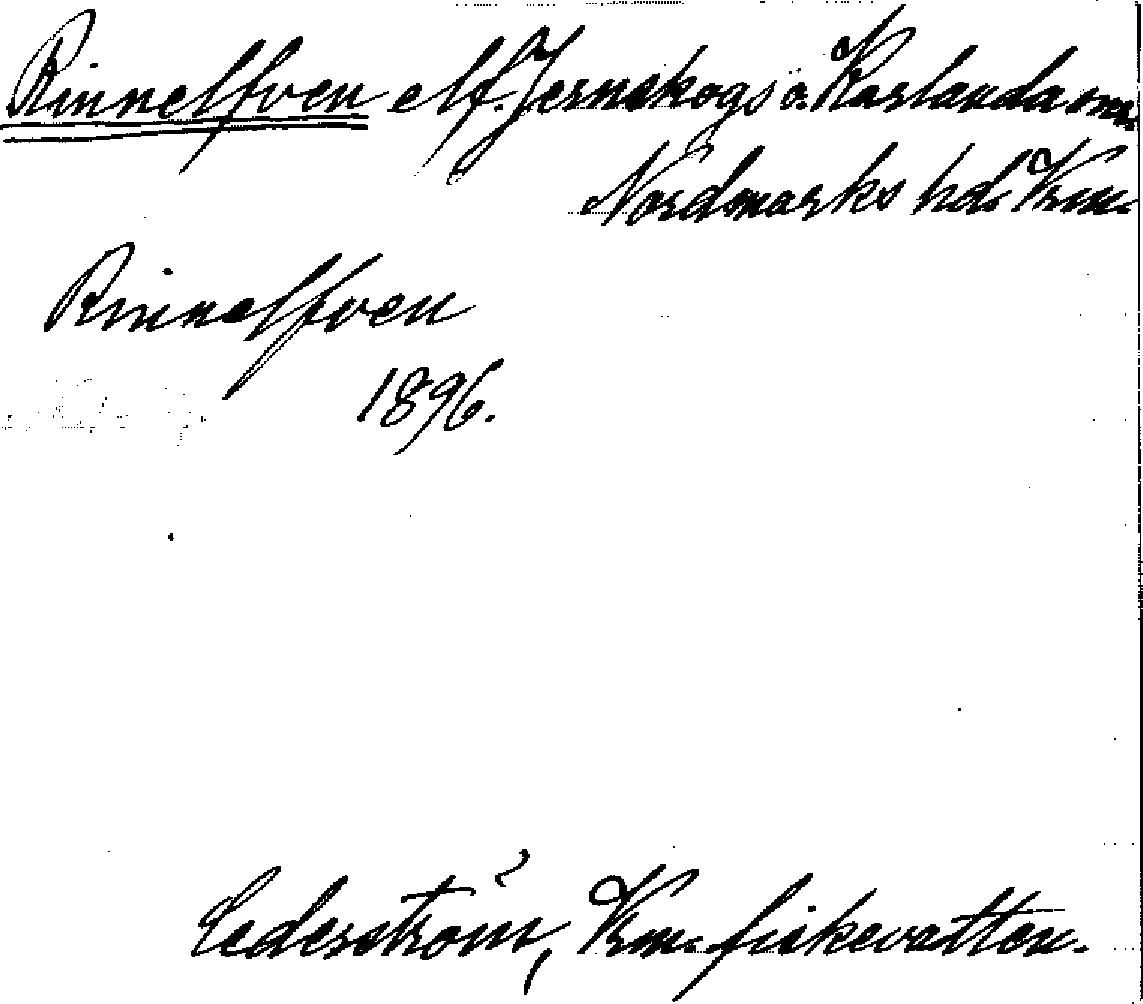 Rinnelfven elf. Jernskogs o. Karlanda snr.
Nordmarks hd. Vrm.
Rinnelfven
1896.
Cederström, Vrm. fiskevatten.